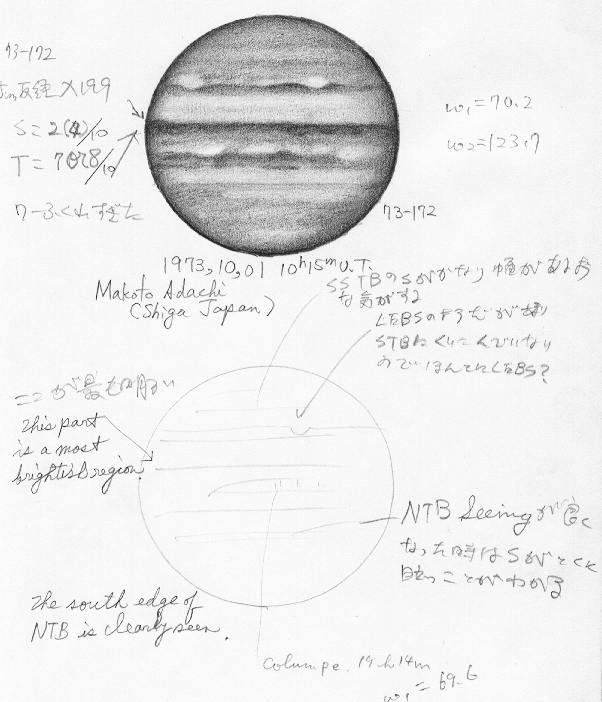 73-172
反経 X199
S=2(4)/10
T=7078/10
ω1=70.2
ω2=123.7
73-172
1973,10,01 10h15m U.T.
Makoto Adachi
(Shiga Japan)
SSTBのSがかなり幅があるお
な気がする
STBにくいこんでいない
ここが最も明るい
This part
is a most
brightest region.
NTB Seeingが良く
なった時はSがとくに
目立つことがわかる
The south edge of
NTB is clearly seen.
19h14m
ω1=69.6